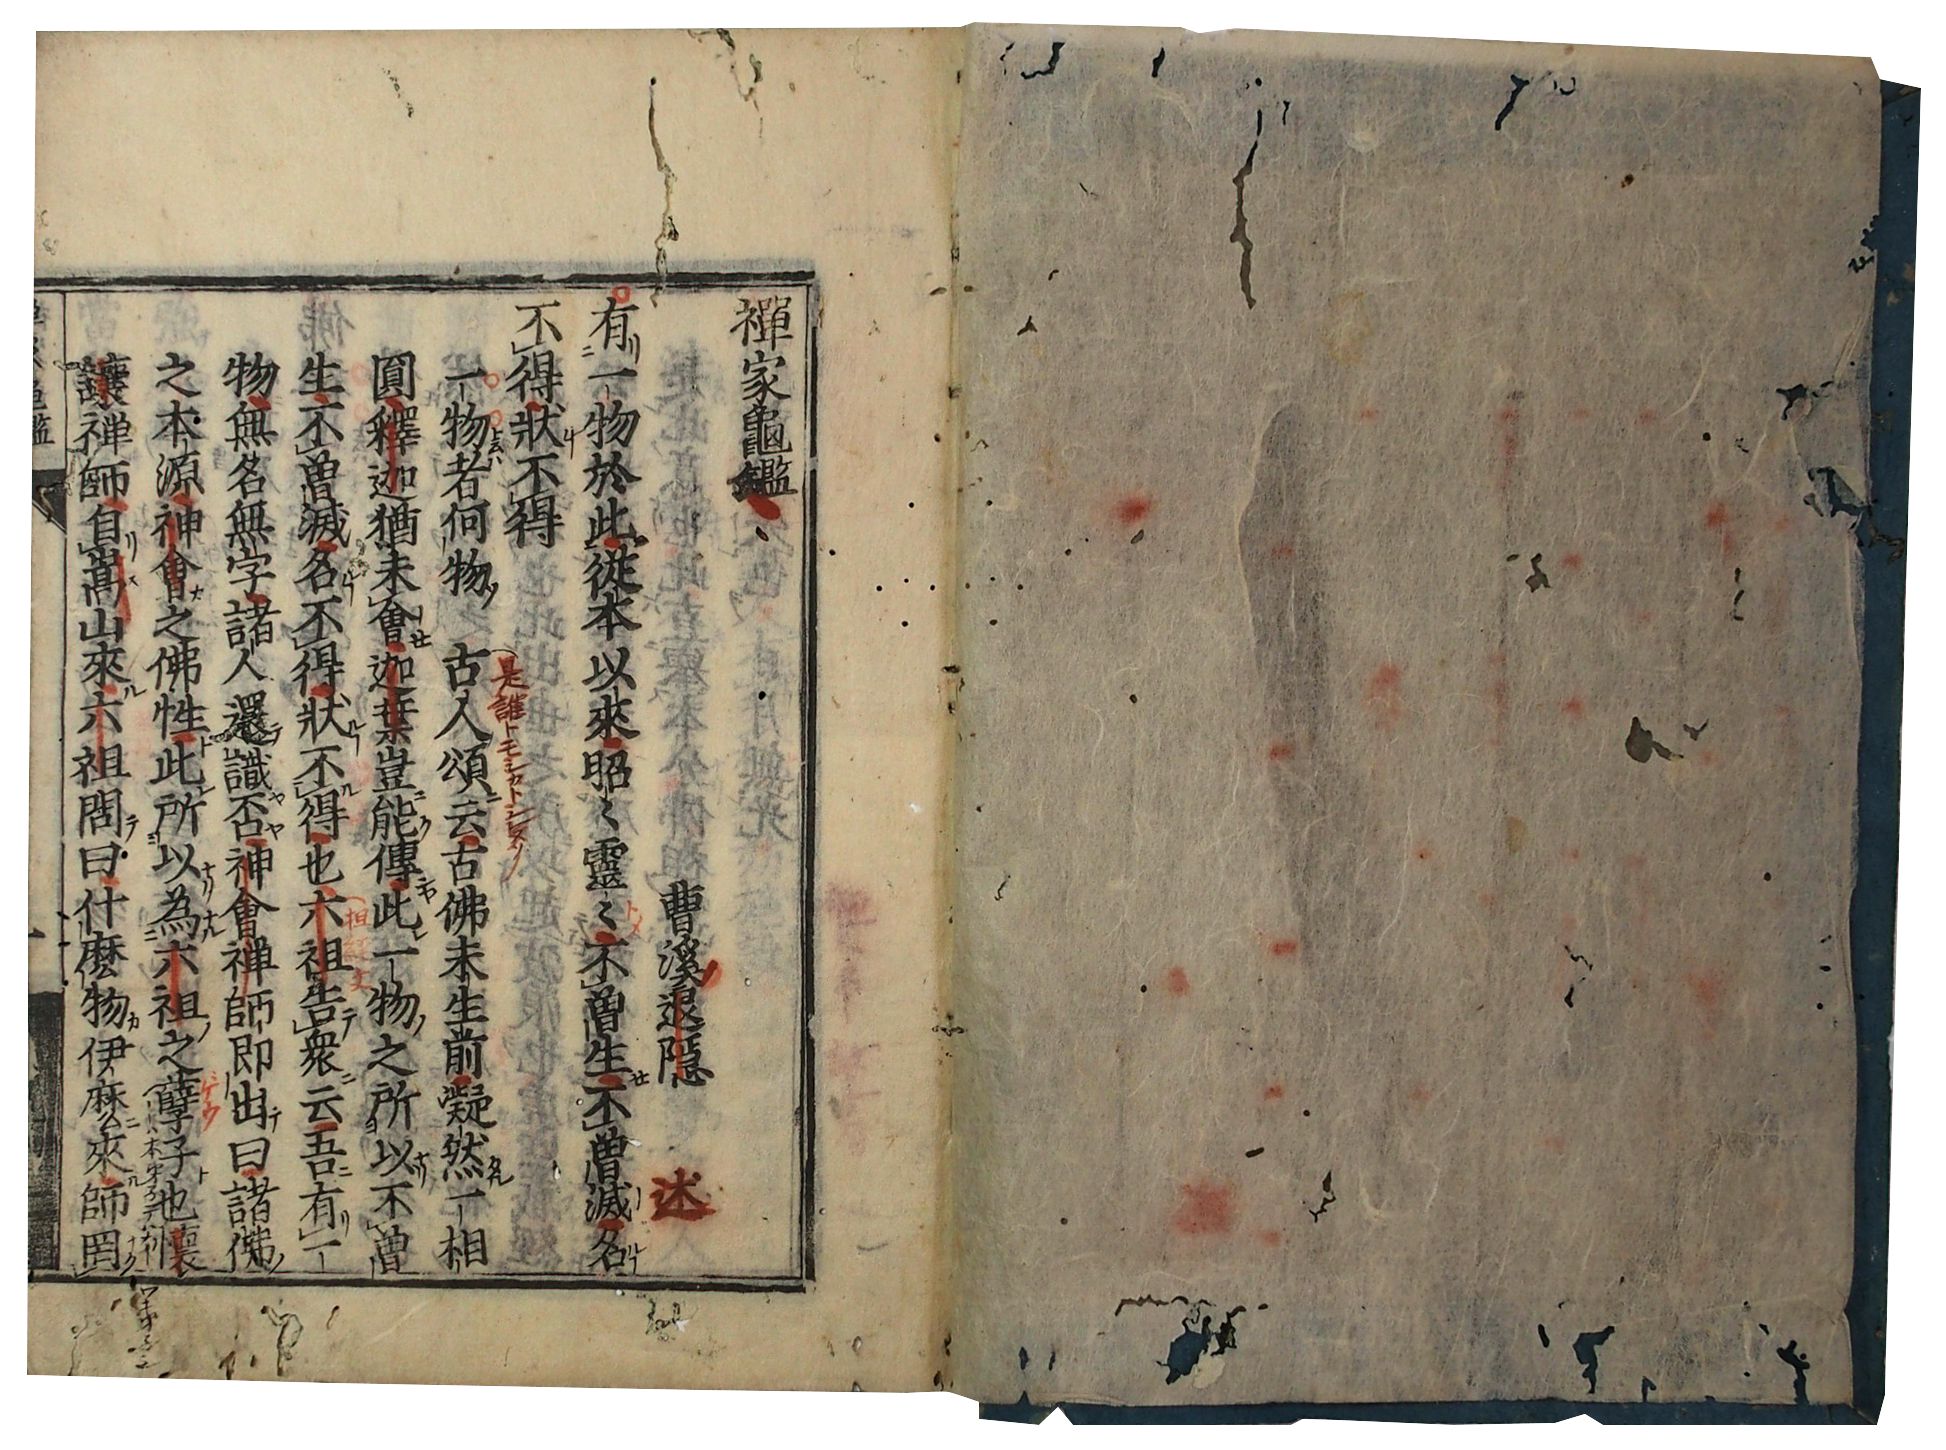 禪家龜鑑
曹溪退隱述
有一物於此從本以來昭〻靈〻不曾生不曾滅名
不得狀不得
一物者何物 古人頌云古佛未生前凝然一相
是誰トモシカト
圓釋迦猶未會迦葉豈能傳此一物之所以不曾
生不曾滅名不得狀不得也六祖告衆云吾有一
物無名無字諸人還識否神會禪師即出曰諸佛
之本源神會之佛性此所以為六祖之孽子也懷
ゲウ
讓禪師自嵩山來六祖問曰什麽物伊麽來師罔